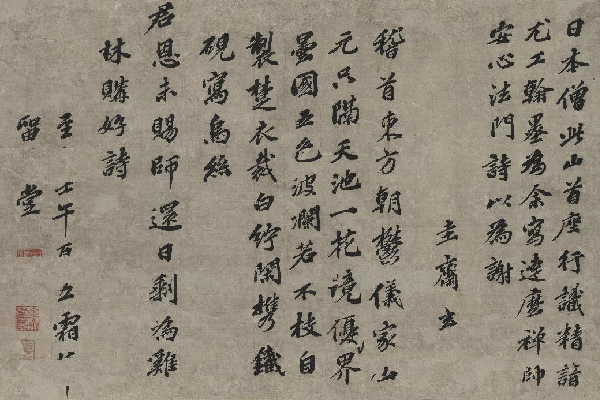 日本僧此山首座行識精諳
尤工翰墨為余寫達磨禪師
安心法門詩以為謝
圭齋玄
稽首東方朝鬱儀家山
元只隔天池一花境優界
曇國五色波瀾若不枝自
製楚衣裁白紵閑攜鐵
硯寫烏絲
君恩未賜師還日剩為雞
林購好詩
至壬午五霜
留堂